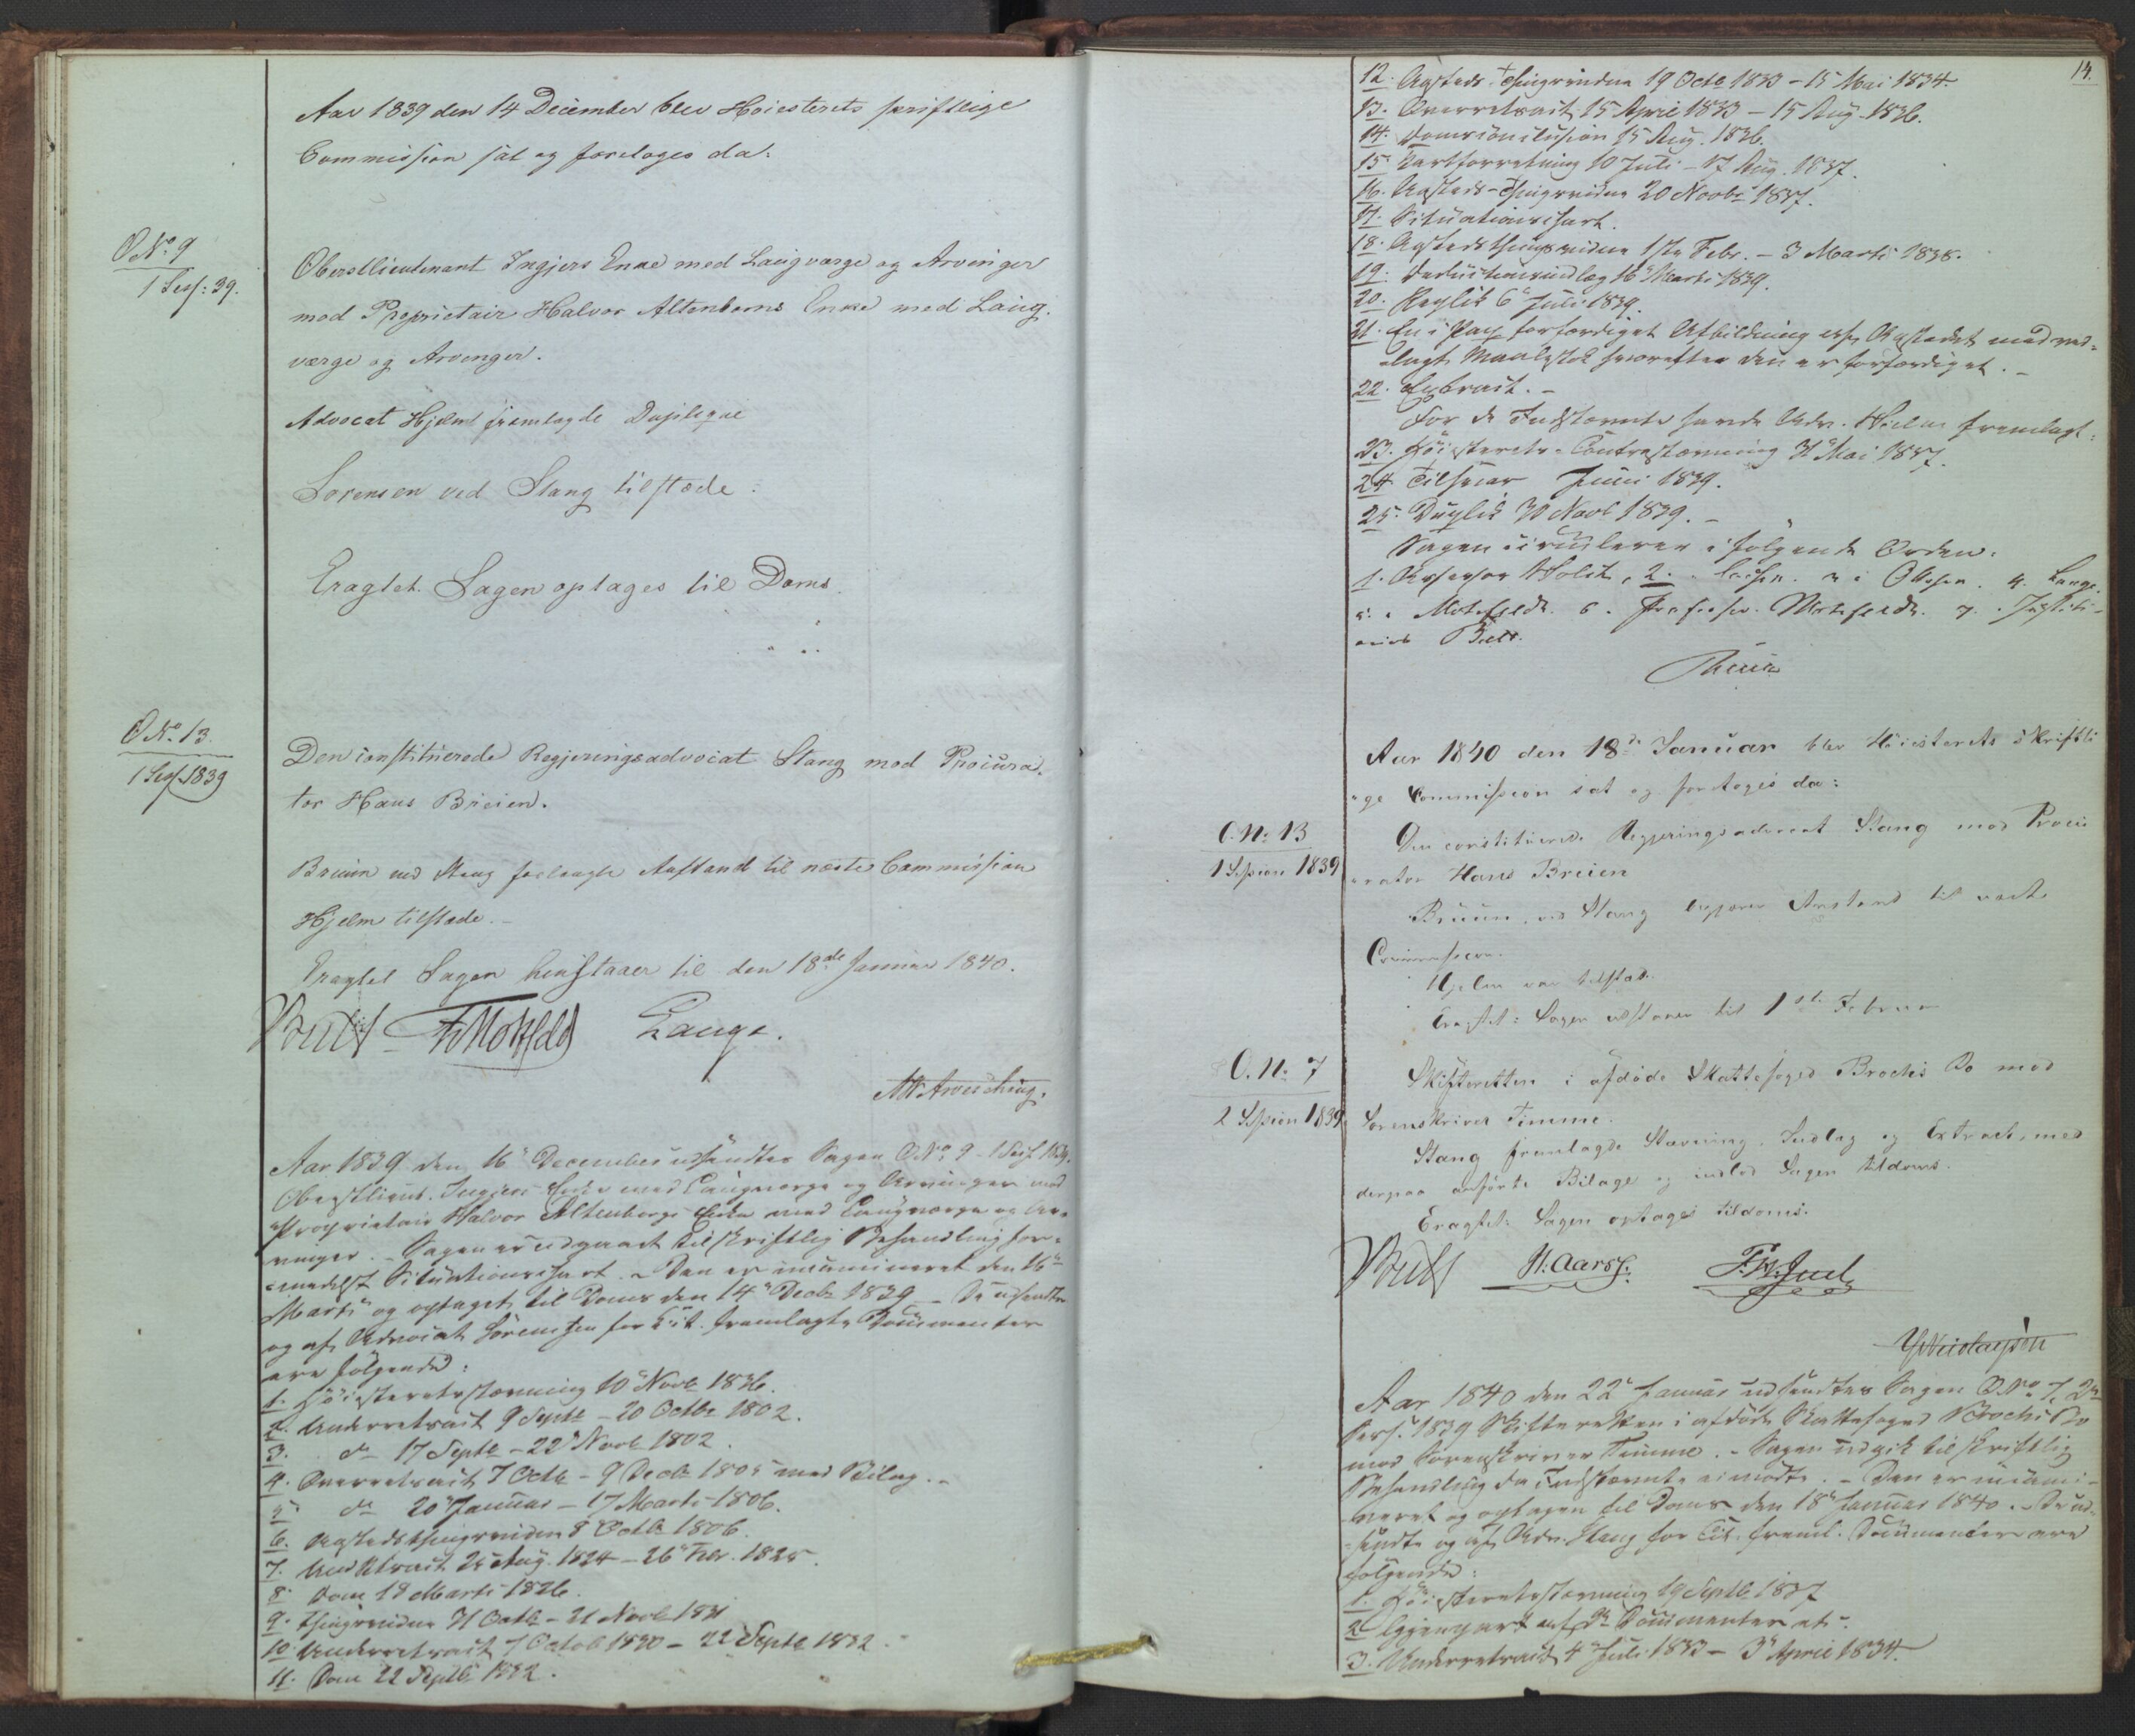 Aar 1839 den 14 December blev Høiesterets skriftlige
Commission sat og foretoges da:
O No. 9
1 Sess: 39.
Oberstlieutenant Ingjers Enke med Laugværge og Arvinger
mod Proprietair Halvor Altenborns Enke med Laug-
værge og Arvinger.
Advocat Hjelm fremlagde Duplique
Sørensen ved Stang tilstæde:
Eragtet. Sagen optages til Doms.
O No. 13.
1 Sess 1839
Den constituerede Regjeringsadvocat Stang mod Procura-
tor Hans Breien.
Bruun ved Stang forlangte Anstand til næste Commission
Hjelm tilstæde.
Eragtet Sagen henstaaer til den 18de Januar 1840.
Lange.
Aar 1839 den 16de December udsendtes Sagen O No. 9 1 Sess. 1839.
Oberstlieut. Ingjers Enke med Laugværge og Arvinger mod
Proprietair Halvor Altenborgs Enke med Laugværge og Ar-
vinger. – Sagen er udgaaet til skriftlig Behandling for-
medelst Situationschart. – Den er incamineret den 16de
Marts og optaget til Doms den 14de Decbr 1839 – De udsendte
og af Advocat Sörensen for Cit. fremlagte Documenter
ere følgende:
1. Høiesteretsstævning 10de Novb 1836.
2. Underretsact 9 Septb – 20 Octbr 1802.
3. do 17 Septb – 22 Novb 1802.
4. Overretsact 7 Octb – 9 Decb 1805 med Bilag. –
5. do 20 Januar – 17 Marts 1806.
6. Aastedsthingsvidne 8 Octb 1806.
7. Undretsact 25 Aug. 1824 – 26 Febr. 1825.
8. Dom 18 Marts 1826.
9. Thingsvidne 31 Octb – 21 Novb 1831
10 Underretsact 7 Octob 1830 – 22 Septb 1832.
11. Dom 22 Septb 1832.
14.
12. Aasteds-Thingsvidne 19 Octb 1833 – 15 Mai 1834.
13. Overretsact 15 April 1833 – 15 Aug. 1836.
14. Domsconclusion 15 Aug. 1836.
15 Kartforretning 10 Juli – 17 Aug. 1837.
16. Aasteds-Thingsvidne 20 Novbr 1837.
17. Situationschart.
18. Aastedsthingsvidne 1ste Febr. – 3 Marts 1838.
19. Deductionsindlæg 16 Marts 1839.
20. Replik 6 Juli 1839.
21. En i Pap forfærdiget Afbildning af Aastedet med ved-
lagt Maalestok hvorefter den er forfærdiget. –
22. Extract. –
For de Indstævnte havde Adv. Hielm fremlagt:
23. Høiesterets-Contrastævning 31 Mai 1837.
24 Tilsvar Juni 1839.
25. Duplik 30 Novb 1839. –
Sagen circulerer i følgende Orden:
1. Assessor Holst, 2. 3. Ottesen. 4. Lange.
5. Motzfeldt. 6. Professor Motzfeldt. 7. Justiti-
arius Bull.
Aar 1840 den 18de Januar blev Höiesterets skriftli
ge Commission sat og foretoges da:
O. No. 13
1 Session 1839
Den constituerede Regjeringsadvocat Stang mod Procu
rator Hans Breien
Bruun, ved Stang begjærer Anstand til næste
Commission.
Hjelm var tilstæde.
Eragtet: Sagen udstaaer til 1ste Februar
O. No. 7
2 Session 1839
Skifteretten i afdöde Skattefoged Brochs Bo mod
Sorenskriver Timme.
Stang fremlagde Stævning, Indlæg og Extract, med
derpaa anførte Bilage og indlod Sagen tildoms.
Eragtet: Sagen optages tildoms.
H. Aars.
F. W. Juel
Aar 1840 den 22de Januar udsendtes Sagen O No. 7, 2den
Sess. 1839 Skifteretten i afdöde Skattefoged Brochs Bo
mod Sorenskriver Timme. – Sagen udgik til skriftlig
Behandling da Indstævnte ei mødte. – Den er incami-
neret og optagen til Doms den 18de Januar 1840. – De ud-
sendte og af Adv. Stang for Cit. freml. Documenter ere
følgende:
1. Høiesteretsstævning 19 Septb 1837
2. Gjenpart af do Documenter etc.
3. Underretsact 4 Juli 1833 – 3 April 1834.